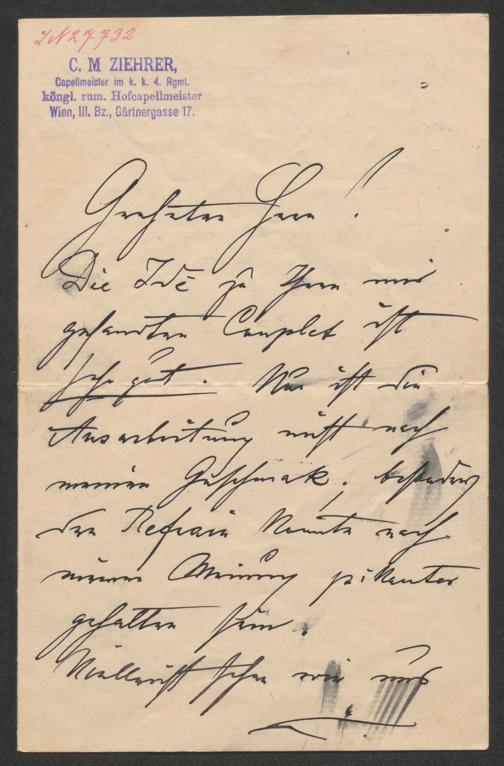 IN 27732
C. M ZIEHRER,
Capellmeister im k. k. 4. Rgmt.
köngl. rum. Hofcapellmeister
Wien, III. Bz., Gärtnergasse 17.
Geehrter Herr!
Die Idé zu Ihren mir
gesandten Couplet ist
sehr gut. Nur ist die
Ausarbeitung nicht nach
meinen Geschmak, besonders
der Refrain könnte nach
meiner Meinung pikanter
gehalten sein.
Vielleicht sehen wir uns